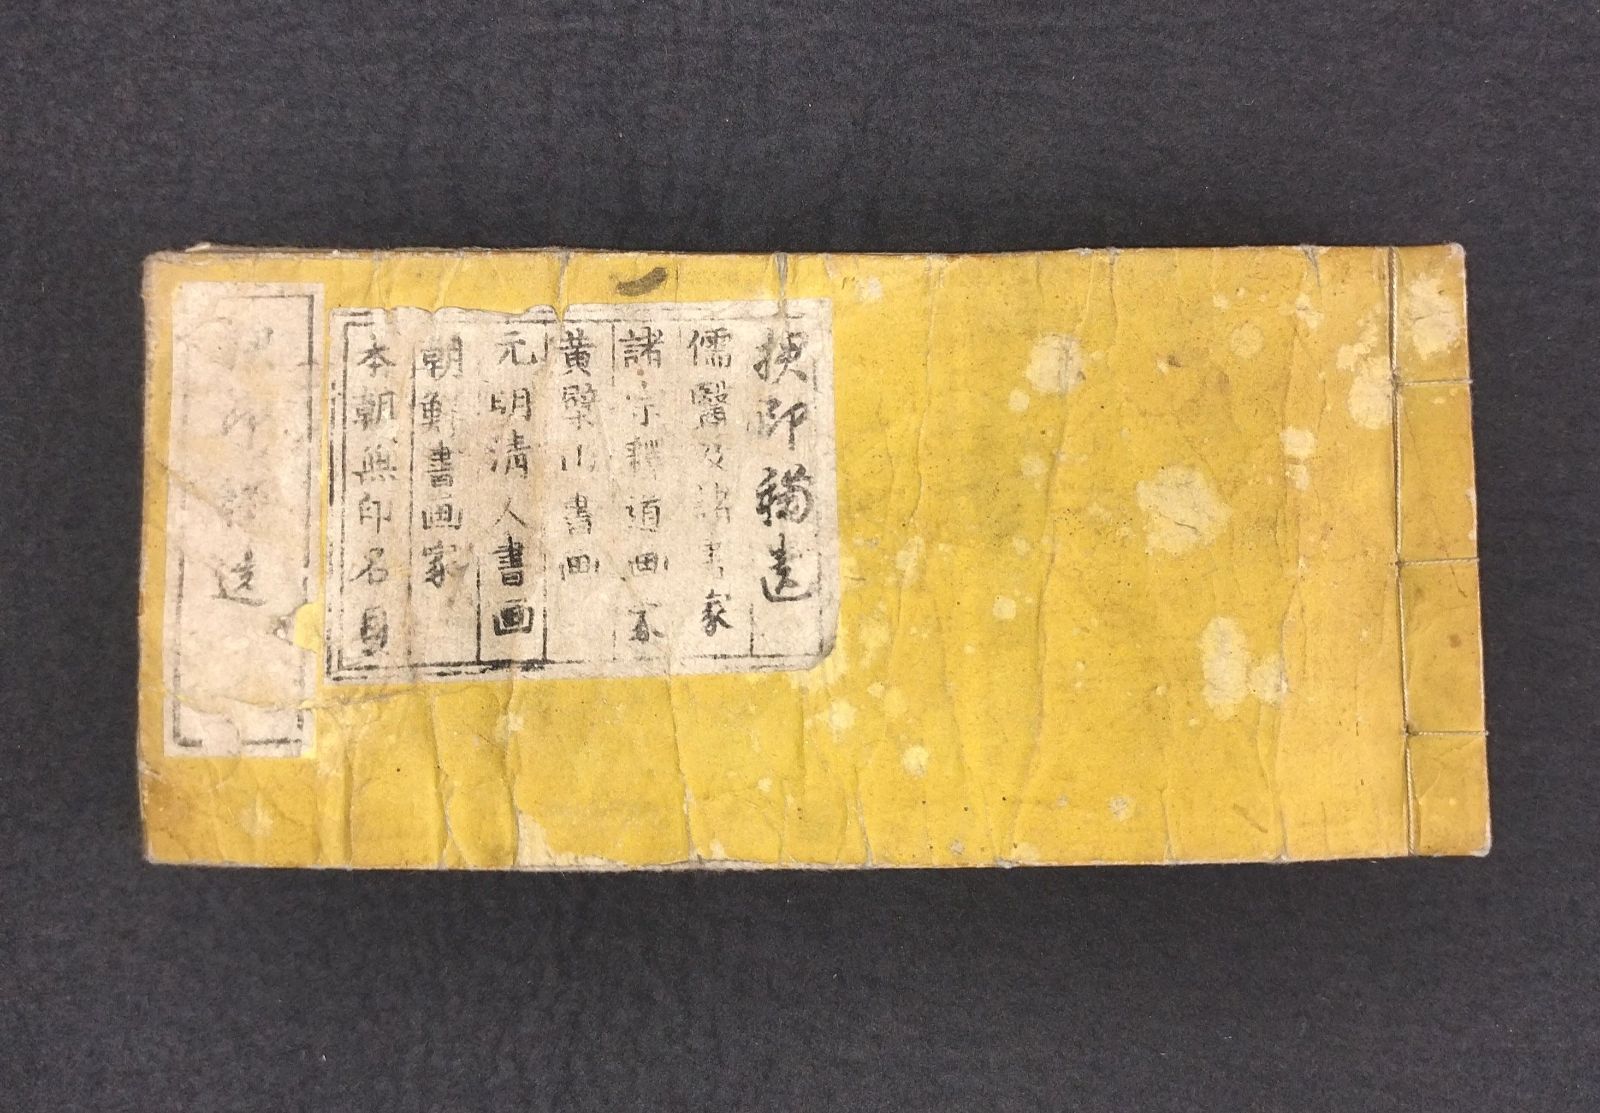 押印補遺
儒醫及諸書家
諸宗釋道画家
黄檗山書画
元明清人書画
朝鮮書画家
本朝無印名員
印
遺